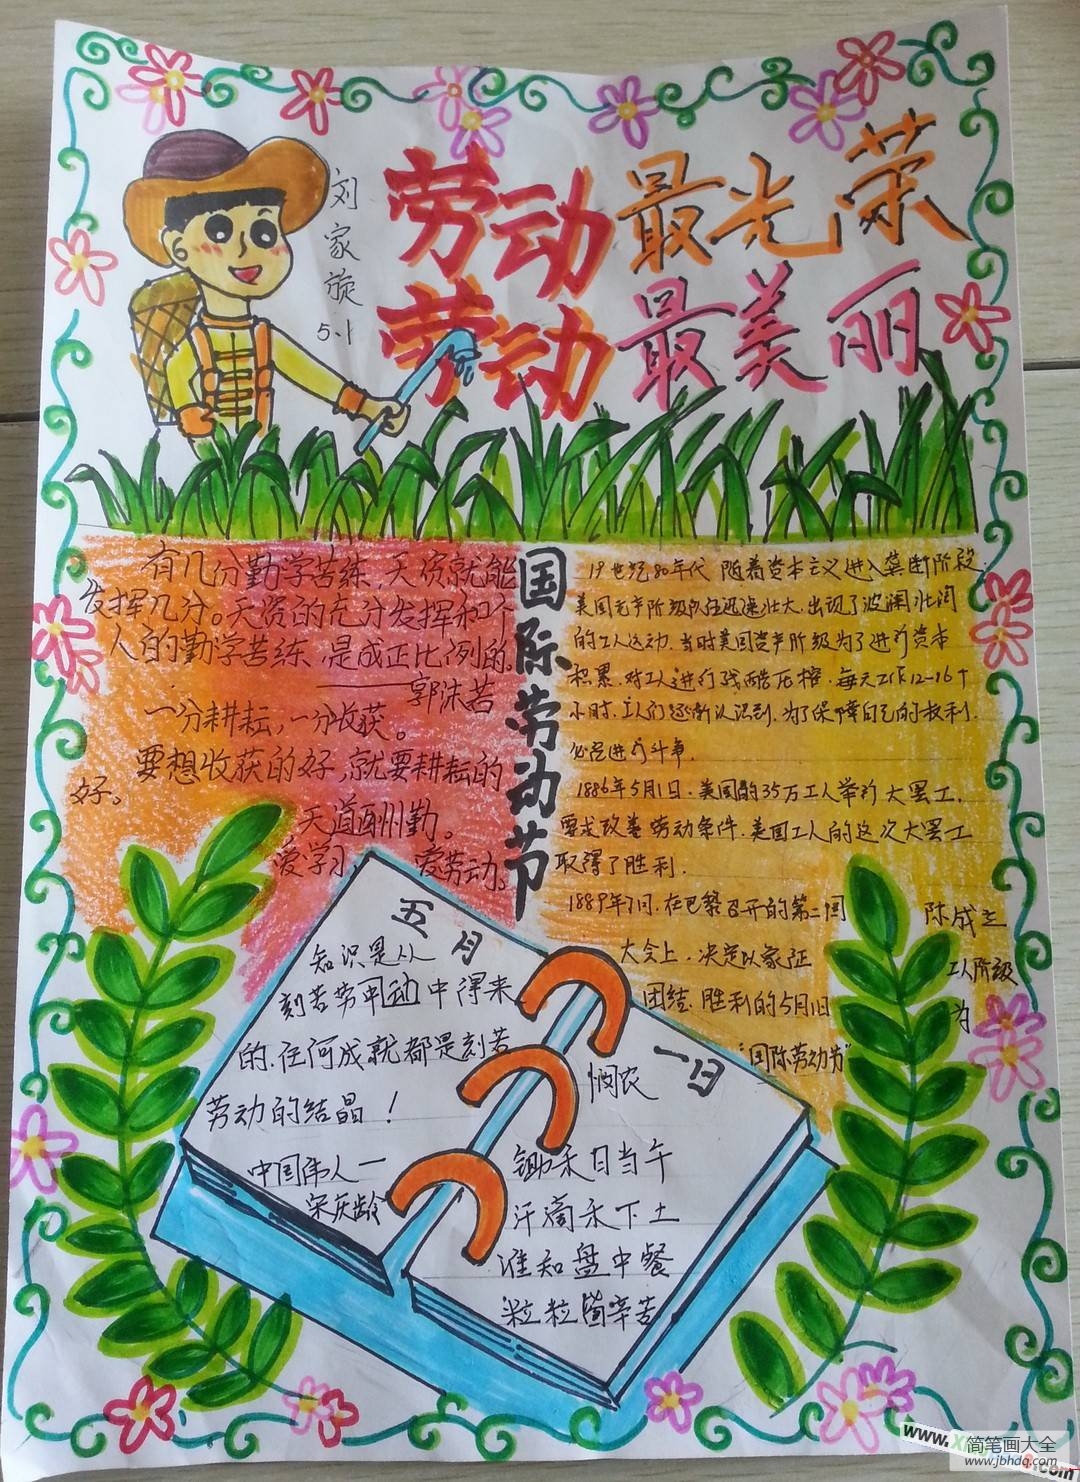 刘家旋
5.1
劳动最光荣
劳动最美丽
国际劳动节
有几份勤学苦练,天资就能
发挥几分。天资的充分发挥和个
人的勤学苦练,是成正比例的
——郭沫若
一分耕耘,一分收获。
要想收获的好,就要耕耘的
好。
天道酬勤。
爱学习, 爱劳动。
19世纪80年代 随着资本主义进入垄断阶段.
美国无产阶级队伍迅速壮大.出现了波澜壮阔
的工人运动.当时美国资产阶级为了进行资本
积累.对工人进行残酷压榨.每天工作12-16个
小时.工人们逐渐认识到.为了保障自己的权利.
必须进行斗争.
1886年5月1日.美国的35万工人举行大罢工.
要求改善劳动条件.美国工人的这次大罢工
取得了胜利.
1889年7月.在巴黎召开的第二国 际成立
大会上.决定以象征 工人阶级
团结.胜利的5月1日 为
"国际劳动节"
五月
知识是从
刻苦劳动中得来
的.任何成就都是刻苦
劳动的结晶!
中国伟人—
宋庆龄
一日
悯农
锄禾日当午
汗滴禾下土
谁知盘中餐
粒粒皆辛苦
简笔画大全
www.jbhdq.com